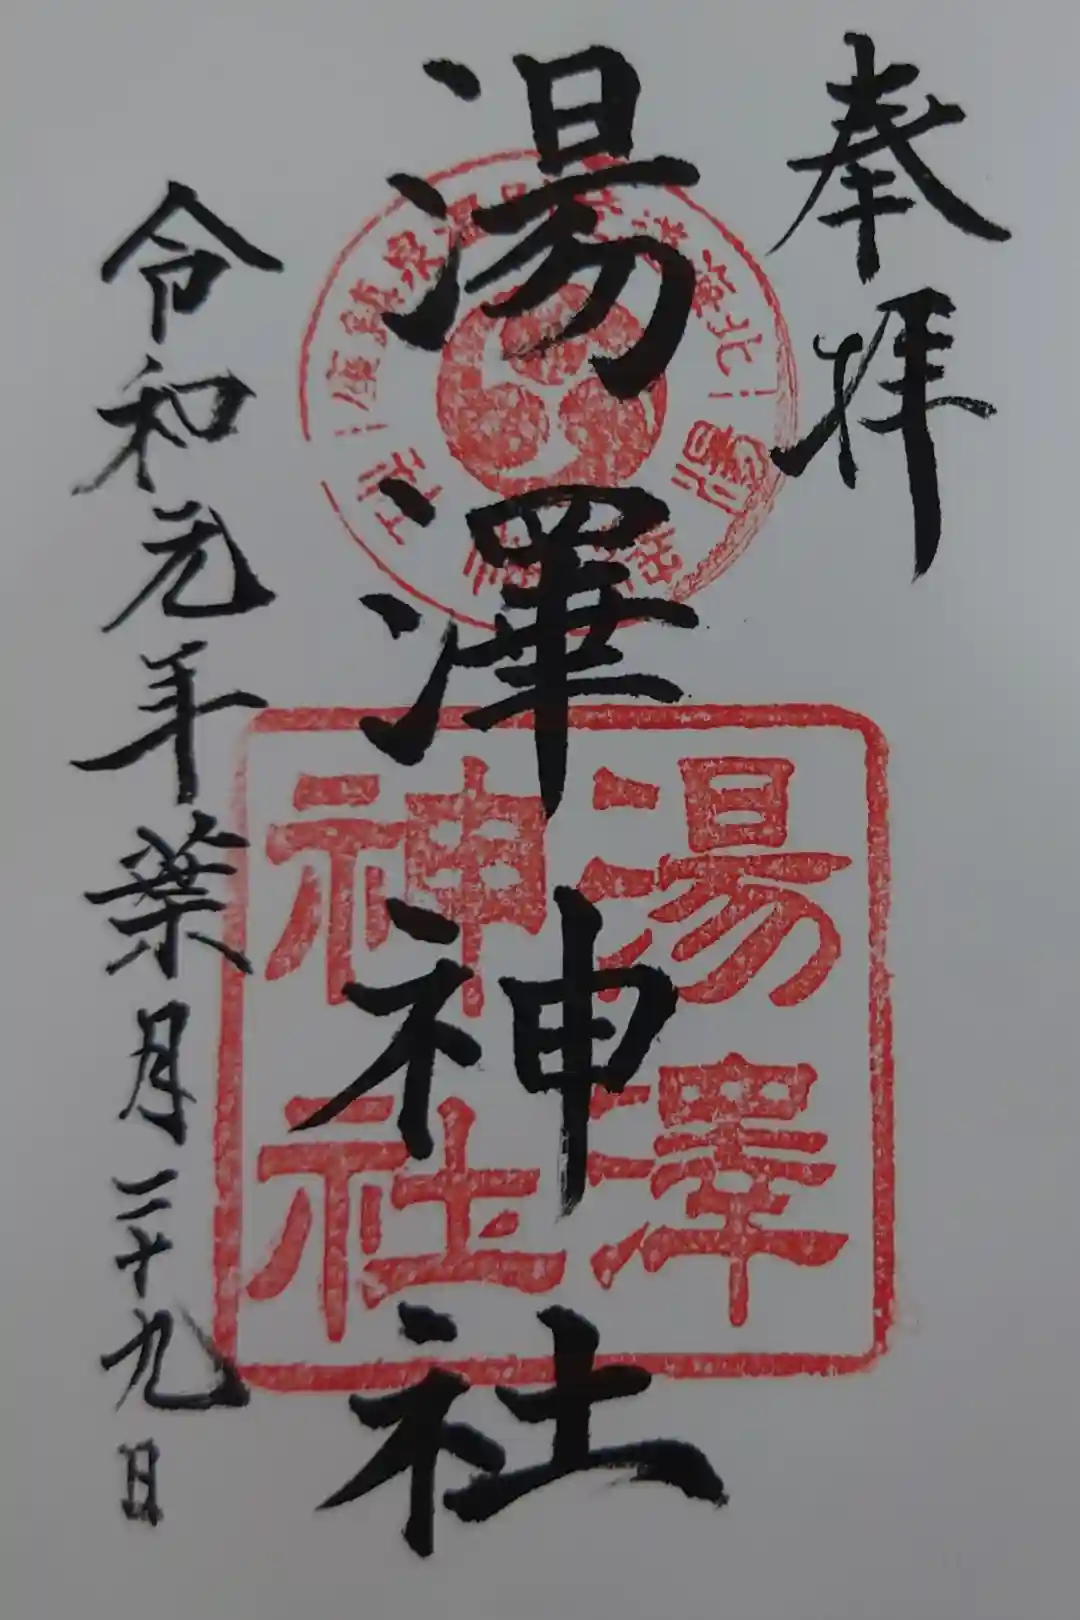 奉拝
湯澤神社
令和元年葉月二十九日
湯澤
神社